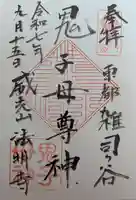 奉拝
東都雑司ヶ谷
鬼子母尊神
威光山 法明寺
令和七年
九月十五日